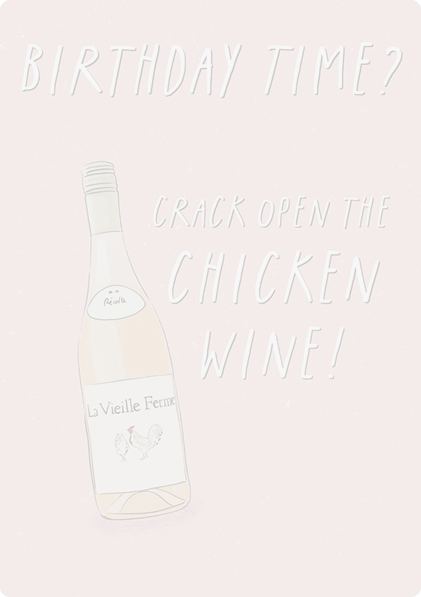 BIRTHDAY TIME?
CRACK OPEN THE
CHICKEN
WINE!
Récolte
La Vieille Ferme